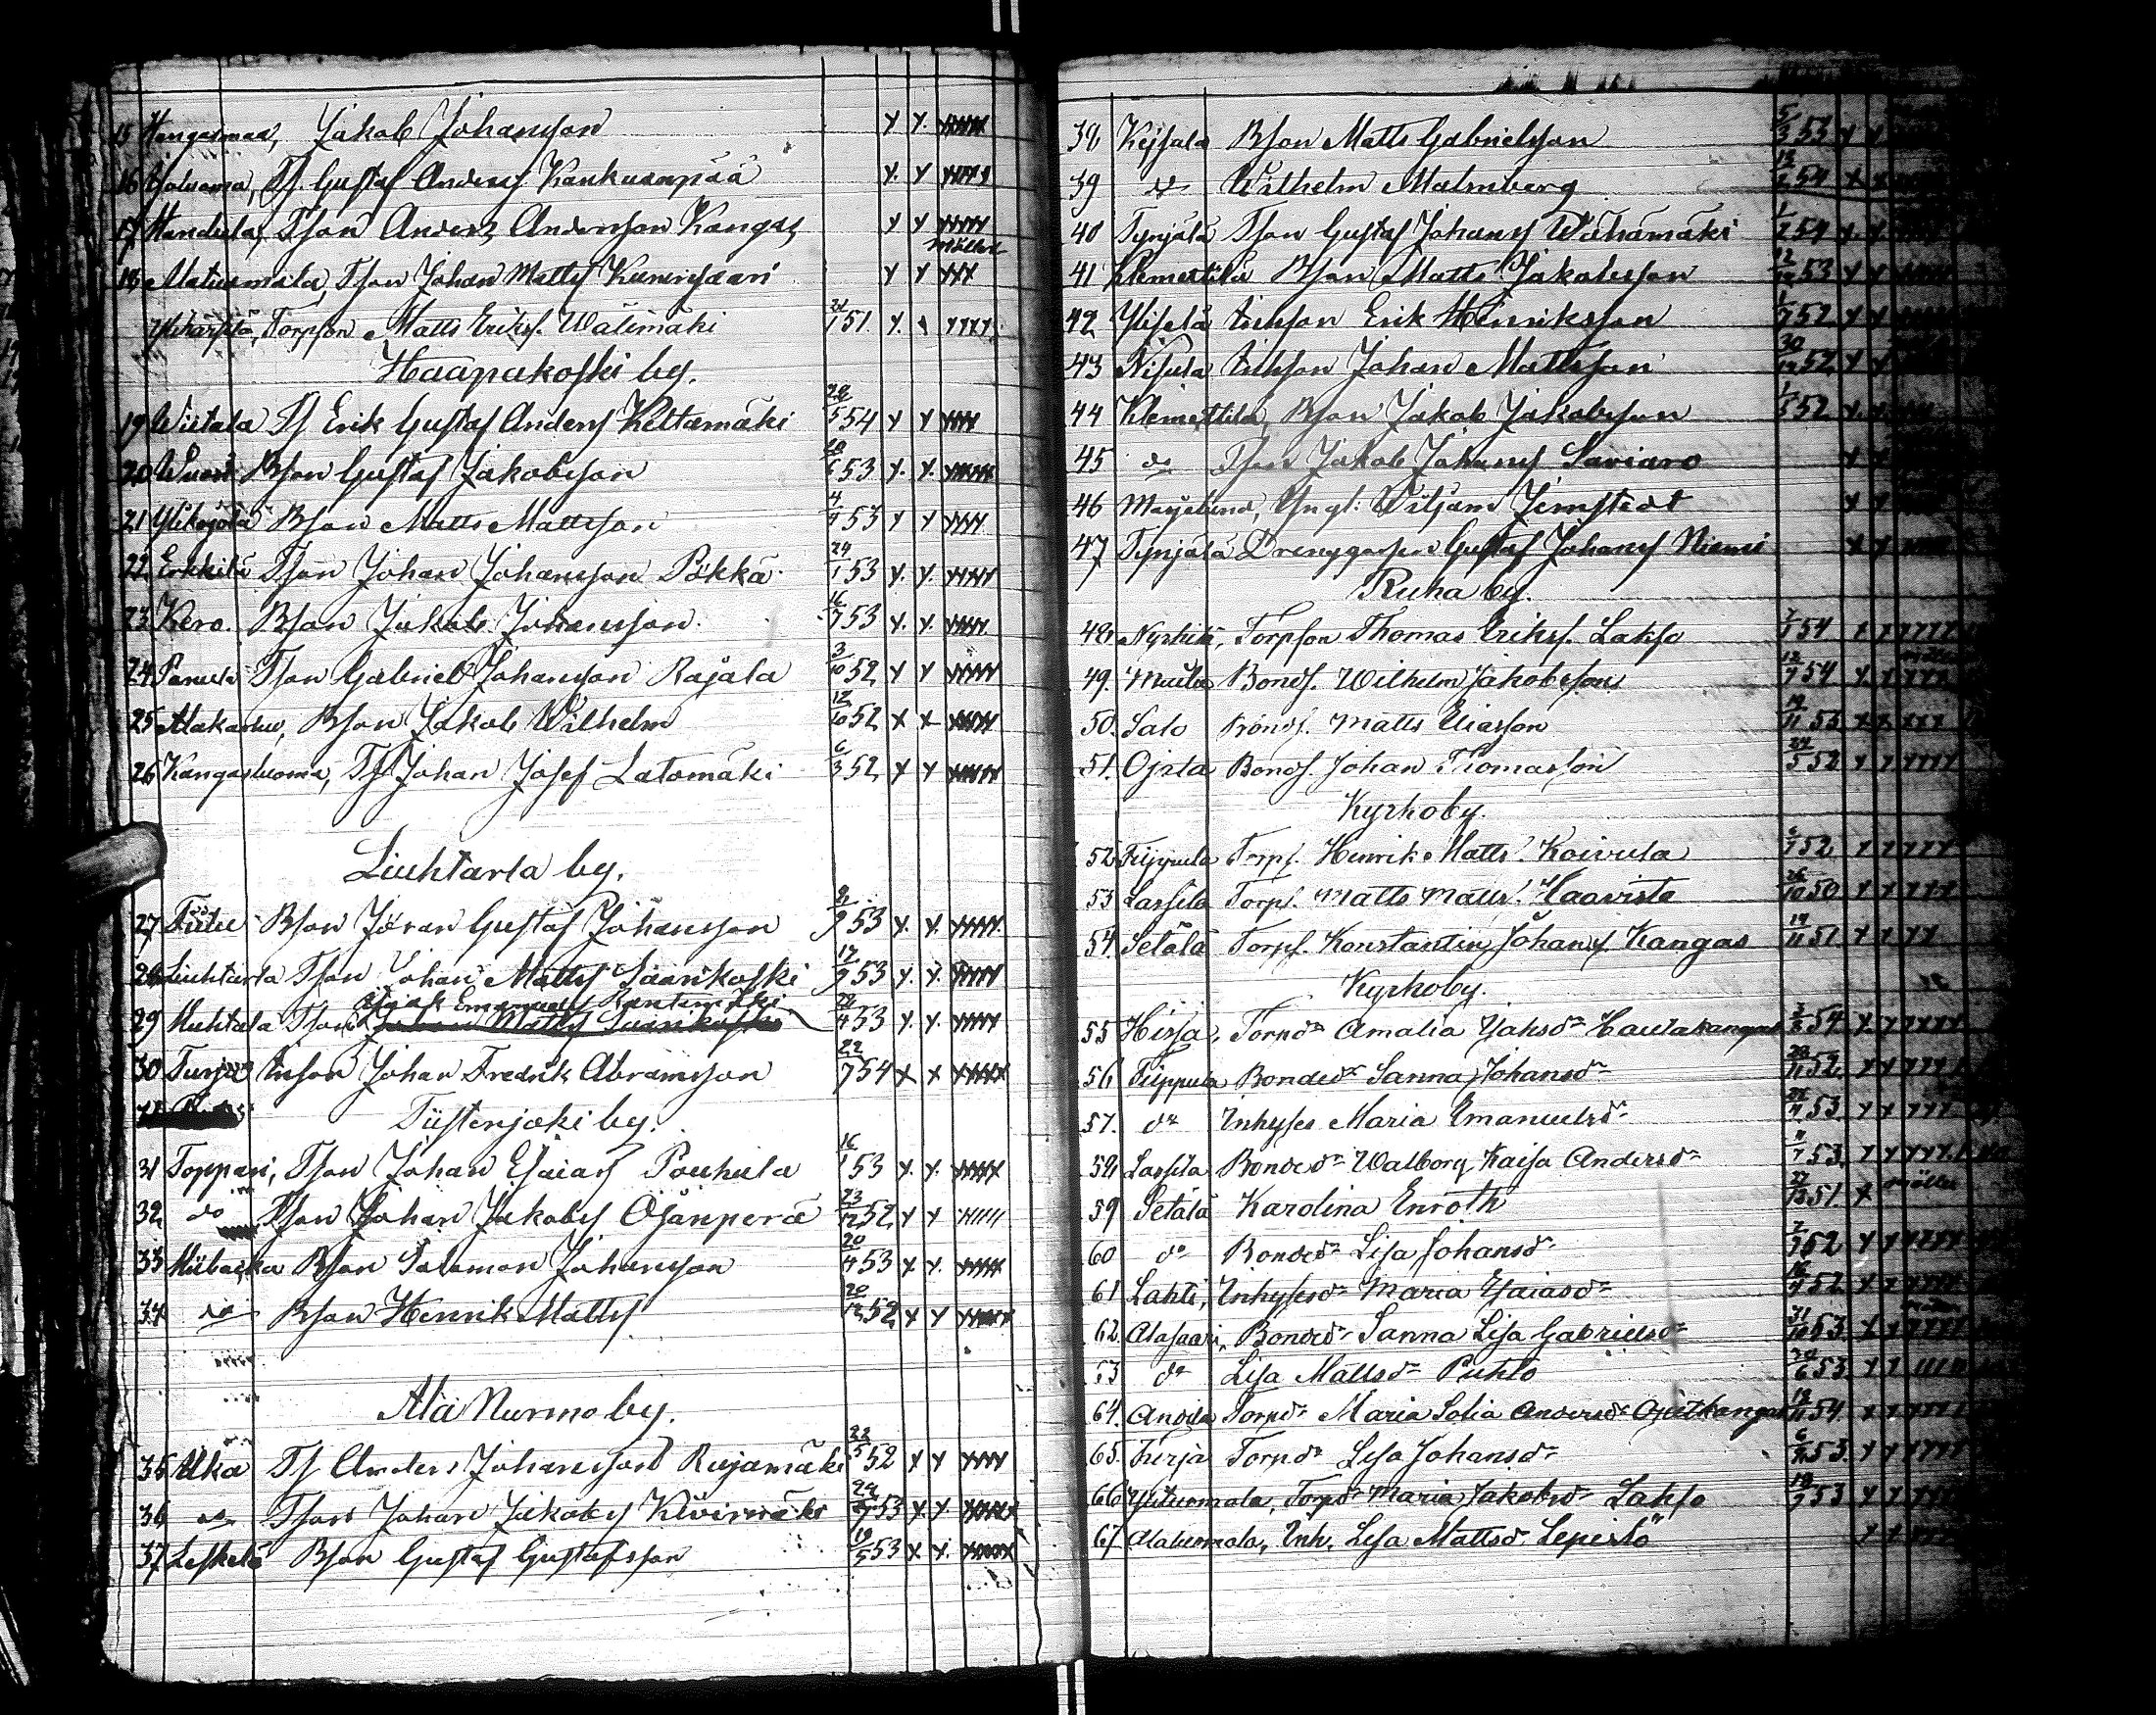 15 Hangasmaa, Jakob Johansson x x. xxxxx
16 Isf. Gustaf Anders Kankaanpää x. x xxxx
17 Handula, Tson Anders Andersson Kangas x x xxxxx
18 Matusmäla, Tson Johan Matts x x xxx
Torpson Matts Eriks. Wälimäki 1 51 x. x xxxx
Haapakoski by.
19 Wiitala Ts Erik Gustaf Anders Keltamäki 28/5 54 x x xxxx
20 Bson Gustaf Jakobsson 53 x. x. xxxxx
21 Ylikojola Bson Matts Mattsson 4/4 53 x x xxxx
22. Erkkilä Tson Johan Johansson Pökkä 24/1 53 x. x. xxxx
23 Kero. Bson Jakob Johansson. 16/7 53 x. x. xxxx
24 Panula Tson Gabriel Johansson Rajala 3/10 52 x x xxxxx
25 Bson Jakob Wilhelm 12/10 52 x x xxxxx
26 Kangasluoma, Ts Johan Josef Latomäki 6/3 52 x x xxxxx
Liuhtarla by.
27 Bson Jöran Gustaf Johansson 9 53 x. x. xxxxx
28 Liuhtarla Tson Johan Matts Saarikoski 17/9 53 x. x. xxxx
Isak Emanuels Rantamäki
29 Huhtala Tson Johan Matts Saarikoski 28/4 53 x. x. xxxx
30 Turja Inson Johan Fredrik Abramsson 22/7 54 x x xxxxx
Tiistenjoki by.
31 Toppari, Tson Johan Esaias Pouhula 16/1 53 x. x. xxxxx
32 do Tson Johan Jakobs Ojanperä 23/12 52 x x
33 Bson Salomon Johansson 20/4 53 x x. xxxxx
34 do Bson Henrik Matts 20/12 52 x x xxxxx
Ala Nurmo by.
35 Uka Ts Anders Johansson Rujamäki 22/5 52 x x xxxx
36 do Tson Johan Jakobs Kivimäki 53 x. x. xxxxx
37 Leskelä Bson Gustaf Gustafsson 19/5 53 x x. xxxxx
38 Keisala Bson Matts Gabrielsson 5/3 53 x x
39 do Wilhelm Malmberg 54 x x
40 Tynjälä Tson Gustaf Johans Wähämäki 54 x x
41 Klemettilä Bson Matts Jakobsson 12/12 53 x x
42 Ylisela Inhson Erik Henriksson 1/7 52 x x
43 Nisula Inhson Johan Mattsson 30/12 52 x x
44 Klemettilä, Bson Jakob Jakobsson 1/5 52 x x
45 do Tson Jakob Johans Saviaro x x
46 Marjelund, Yngl. Wiljam Jernstedt x x
47 Tynjälä Gustaf Johans Niemi x x
Ruha by.
48 Nyrhilä, Torpson Thomas Eriks. Lakso 7/1 54 x x xxxx
49. Bonds. Wilhelm Jakobsson 54 x x xxxx
50. Salo Bonds. Matts Eliasson 19/11 53 x x xxx
51. Ojala Bonds. Johan Thomasson 5 52 x x xxxx
Kyrkoby.
52 Filppula Torps. Henrik Matts. Koivula 52 x xxxx
53 Lassila Torps. Matts Matts. Haavisto 26/10 50 x x xxxx
54. Setälä Torps. Konstantin Johans Kangas 19/11 51 x x xx
Kyrkoby.
55 Hirsa, Torpdr Amalia Haulakangas 3/8 54 x. x xxxx
56 Filppula Bondedr Sanna Johansdr 28/11 52 x x xxxx
57. do Inhyses Maria Emanuelsdr 53 x x xxx
58 Lassila Bondedr Walborg Kaisa Andersdr 53. x xxxx
59 Setälä Karolina Enroth 51. x
60 do Bondedr Lisa Johansdr 52 x x xxxx
61 Lahti, Inhysesdr Maria Esaiasdr 52 x x xxxx
62. Alasaari, Bondedr Sanna Lisa Gabrielsdr 31/10 53 x x xxxx
63 do Lisa Mattsdr Puhto 30/6 53. x x
64. Anvila Torpdr Maria Sofia Andersdr 54. x xxxx
65. Turja Torpdr Lisa Johansdr 53. x x xxxx
66 Yliluomala, Torpdr Maria Jakobsdr Lakso 53 x x xxx
67. Alaluomala, Inh. Lisa Mattsd. Lepistö x x